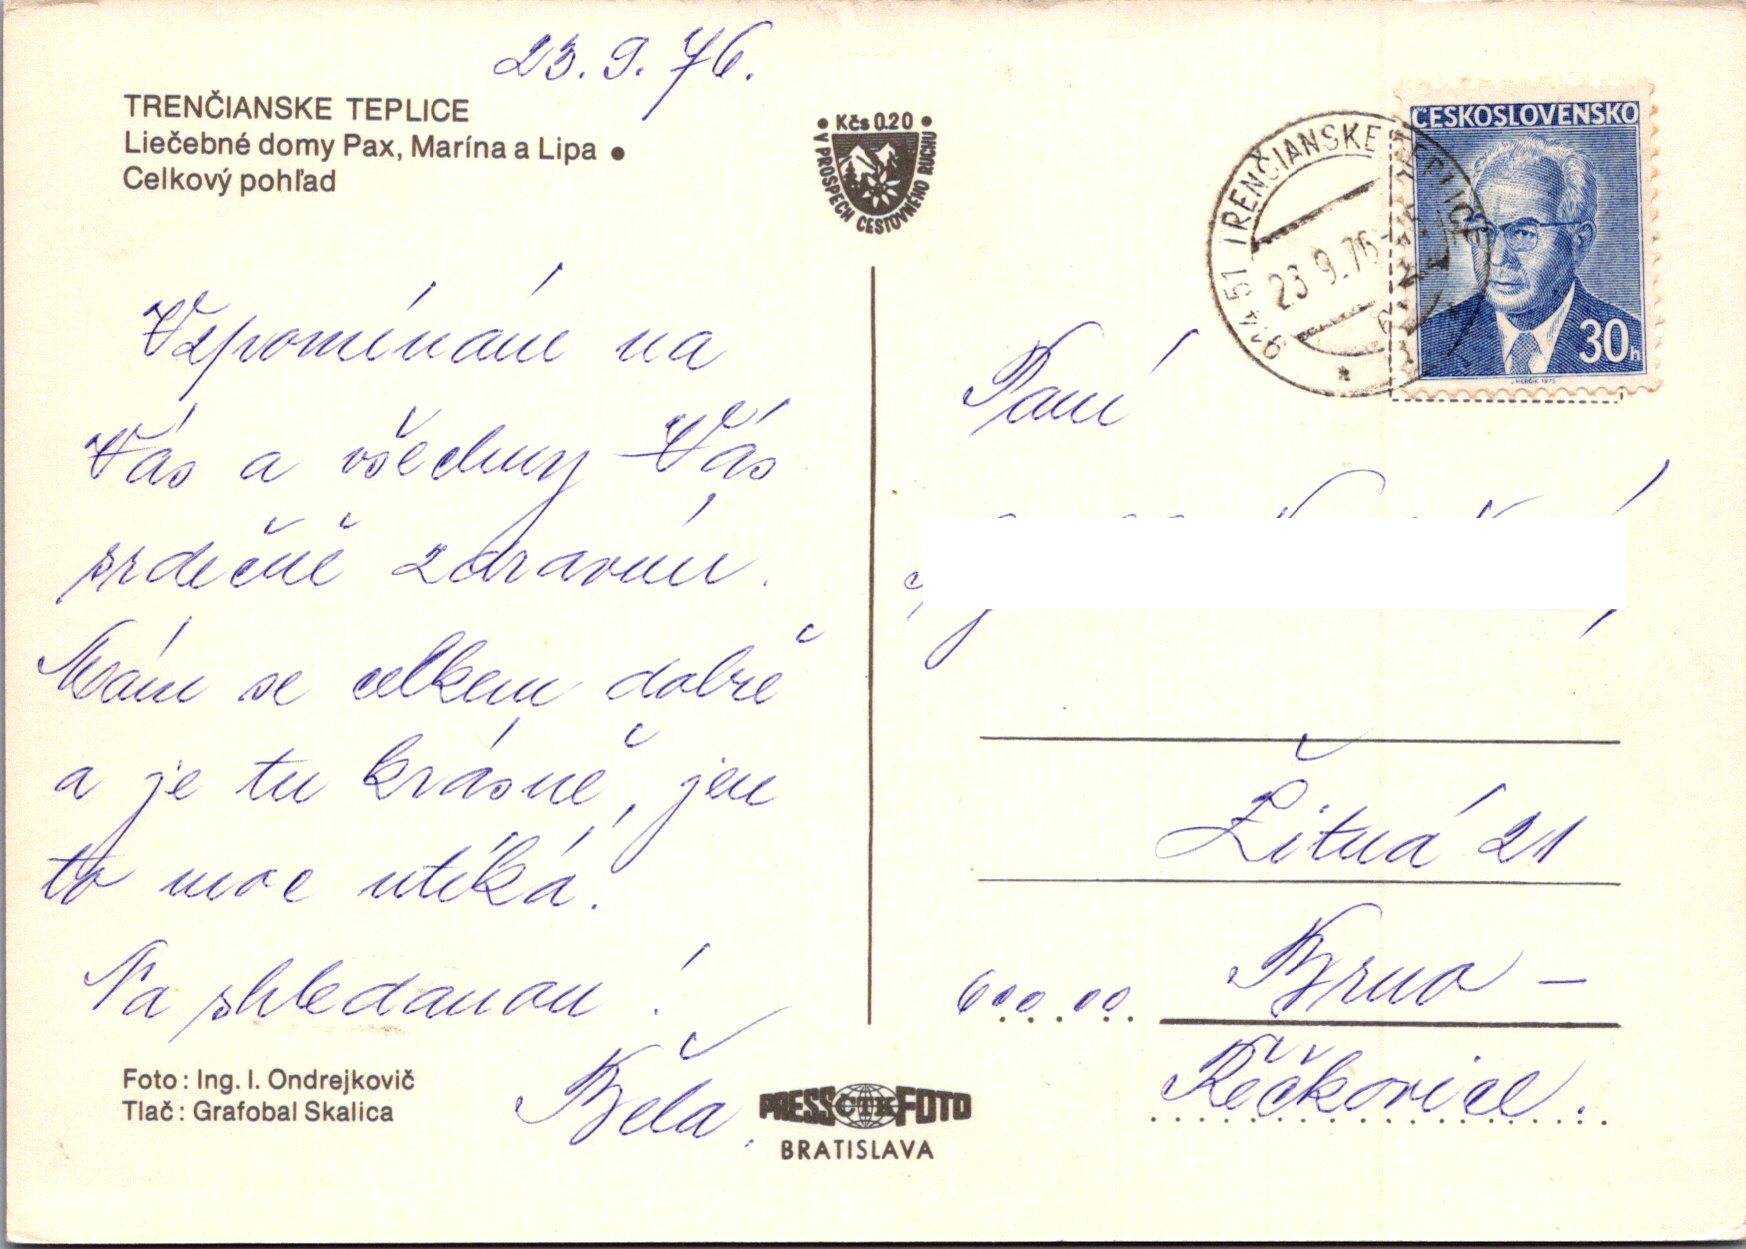 23. 9. 76.
TRENČIANSKE TEPLICE
Liečebné domy Pax, Marína a Lipa •
Celkový pohľad
• Kčs 0.20 •
V PROSPECH CESTOVNÉHO RUCHU
Vzpomínám na
Vás a všechny Vás
srdečně zdravím.
Mám se celkem dobře
a je tu krásně, jen
to moc utíká.
Na shledanou!
Běla.
Foto: Ing. I. Ondrejkovič
Tlač: Grafobal Skalica
PRESS ČTK FOTO
BRATISLAVA
ČESKOSLOVENSKO
30h
914 51 TRENČIANSKE TEPLICE
23.9.76
Paní
Žitná 21
600 00 Brno –
Řečkovice.